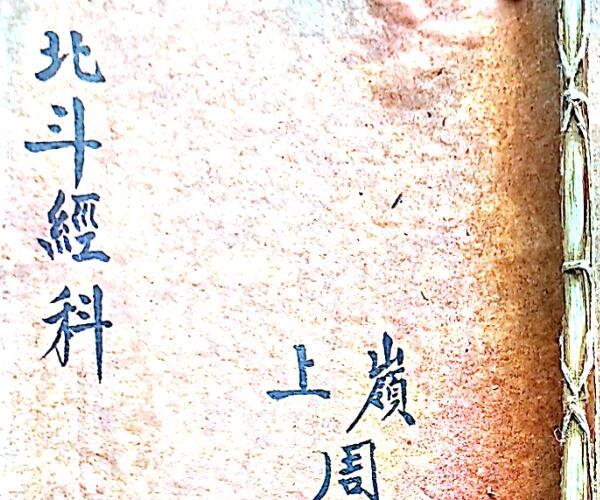 北斗經科
嶺上
周